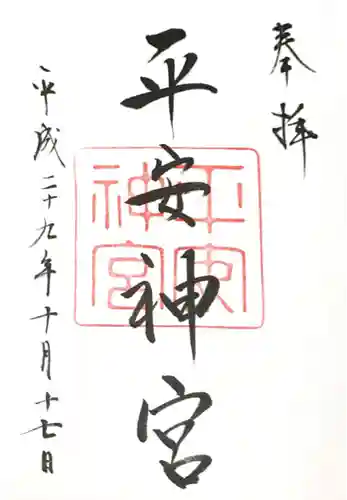 奉拝
平安神宮
平安神宮
平成二十九年十月十七日